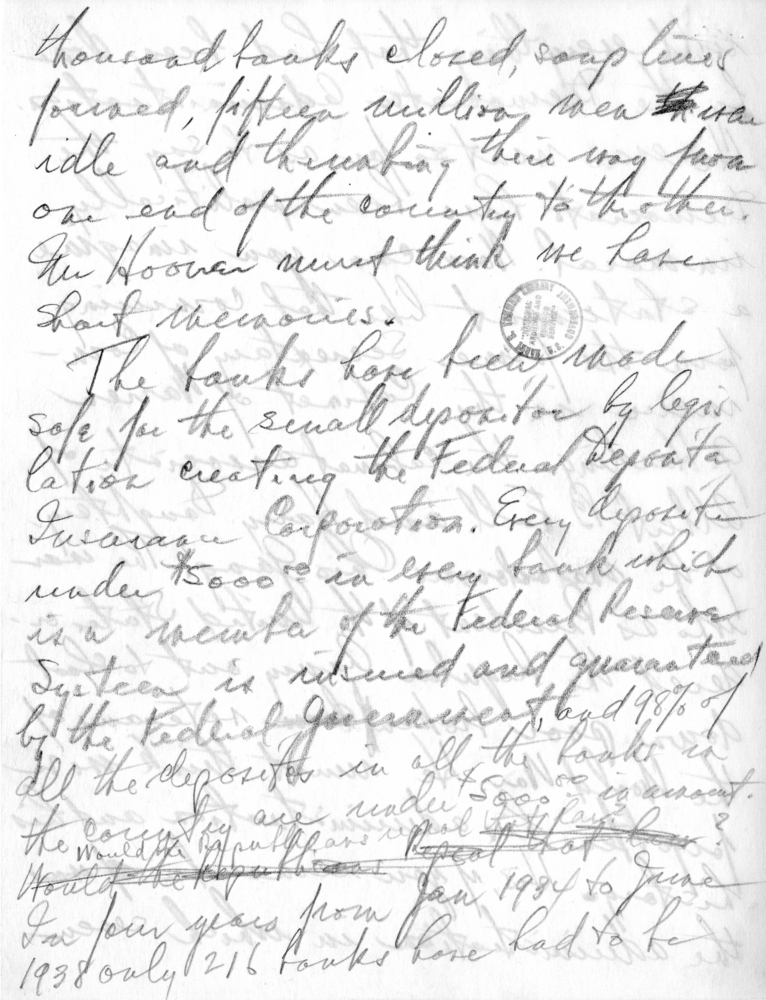 thousand banks closed, soup lines
formed, fifteen million men were
idle and thumbing their way from
one end of the country to the other.
Mr Hoover must think we have
short memories.
The banks have been made
safe for the small depositor by legis
lation creating the Federal Deposit
Insurance Corporation. Every deposit
under $5000.00 in every bank which
is a member of the Federal Reserve
System is insured and guaranteed
by the Federal Government, and 98% of
all the deposits in all the banks in
the country are under $5000.00 in amount.
Would the Republicans repeal that law?
Would the Republicans Repeal that law ?
In four years from Jan 1934 to June
1938 only 216 banks have had to be